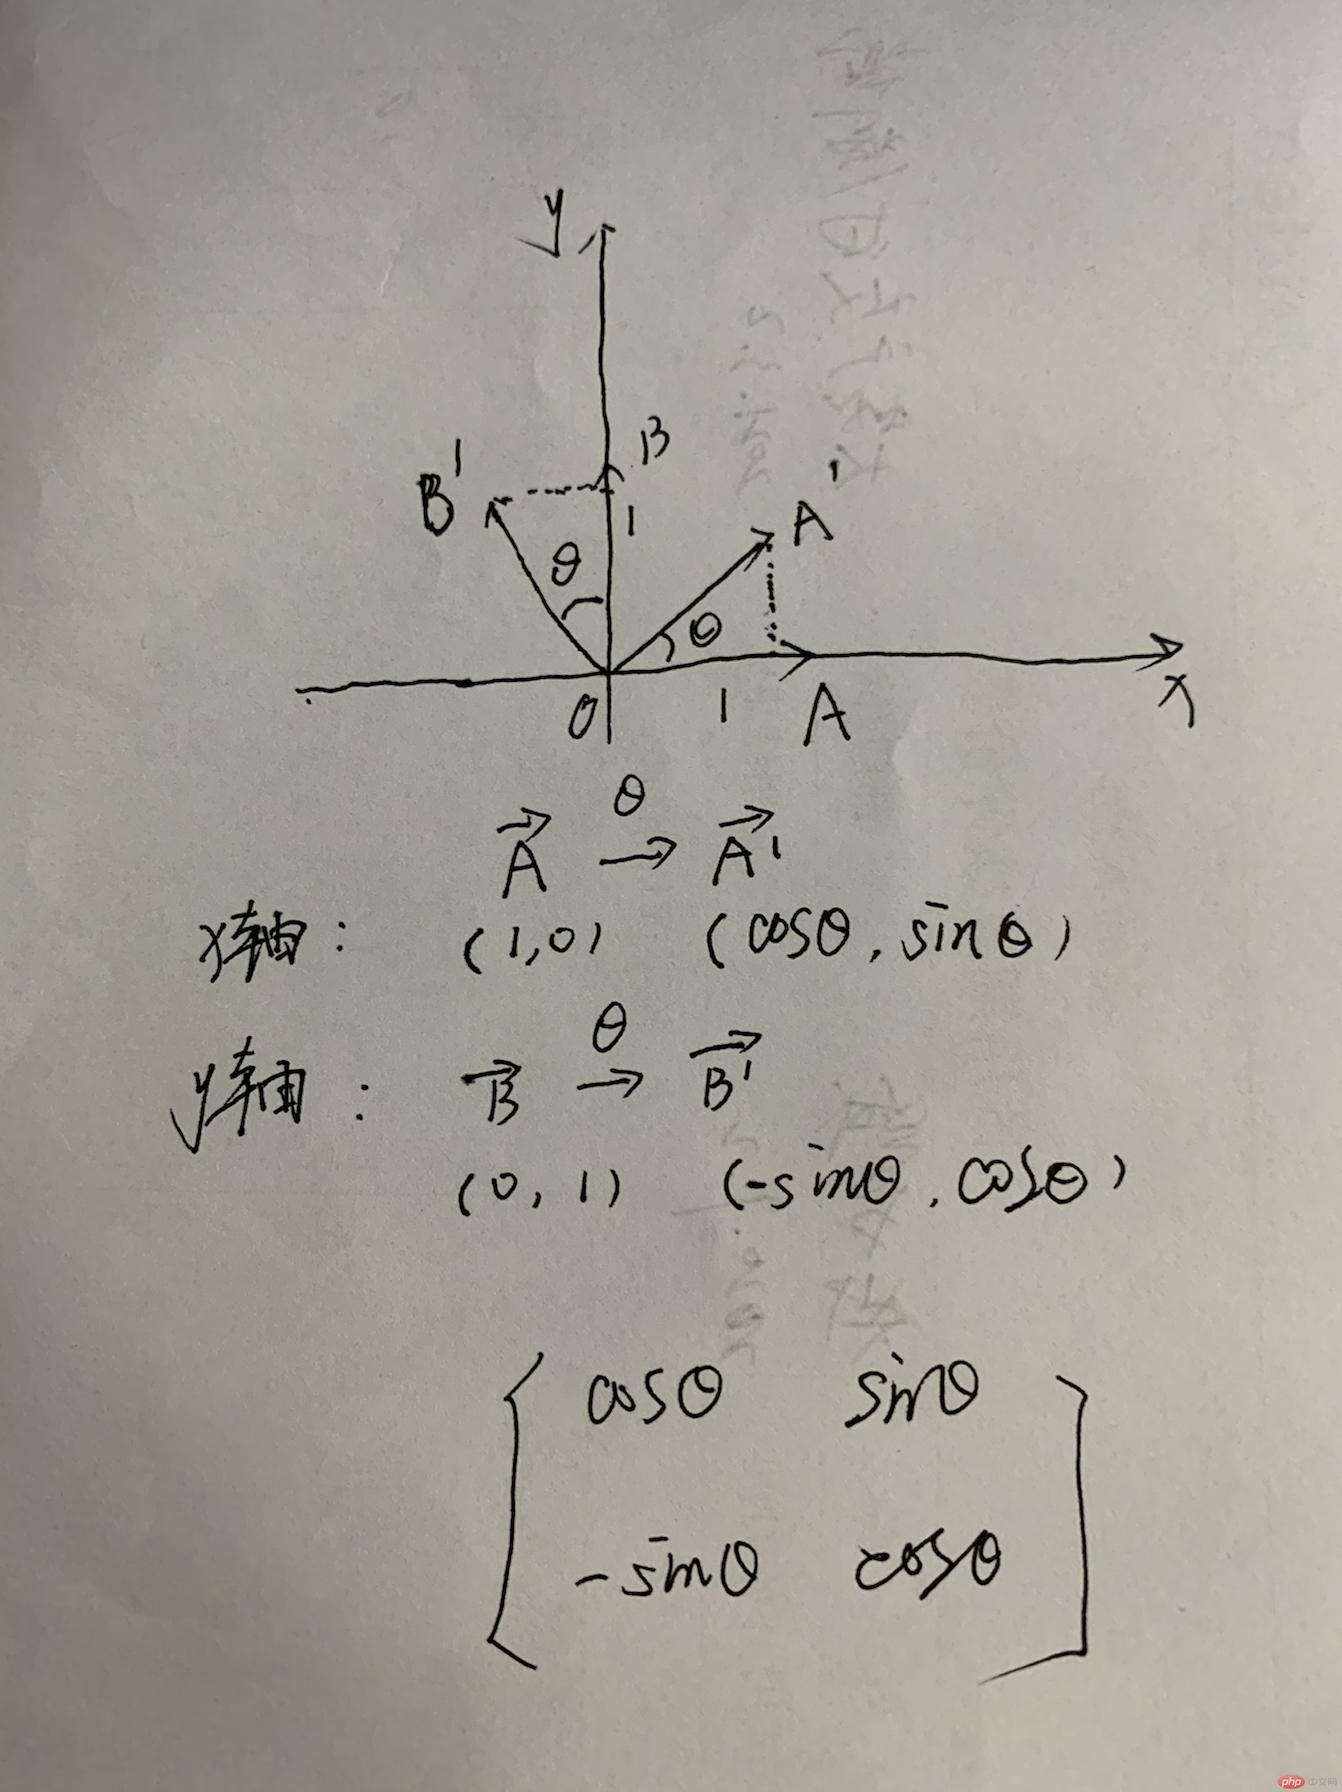 y
B
B'
1
A'
θ
θ
0
1
A
x
θ
A→ → A'→
x轴: (1,0) (cosθ, sinθ)
θ
y轴: B→ → B'→
(0, 1) (-sinθ, cosθ)
cosθ sinθ
-sinθ cosθ
php 中文网